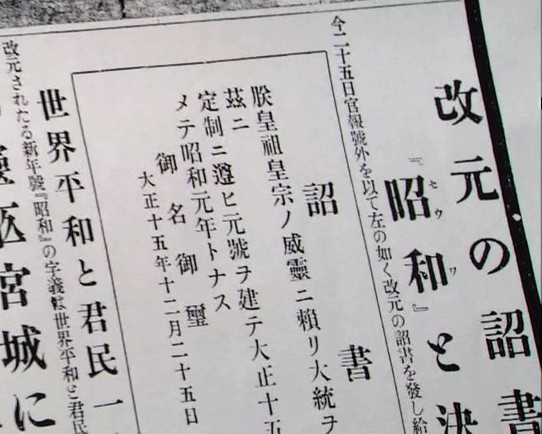 改元の詔書
『昭和』と決
セウワ
今二十五日官報號外を以て左の如く改元の詔書を發し給
詔書
朕皇祖皇宗ノ威靈ニ頼リ大統ヲ
茲ニ定制ニ遵ヒ元號ヲ建テ大正十五
メテ昭和元年トナス
御名御璽
大正十五年十二月二十五日
世界平和と君民一
改元されたる新年號『昭和』の字義は世界平和と君民
宮城に